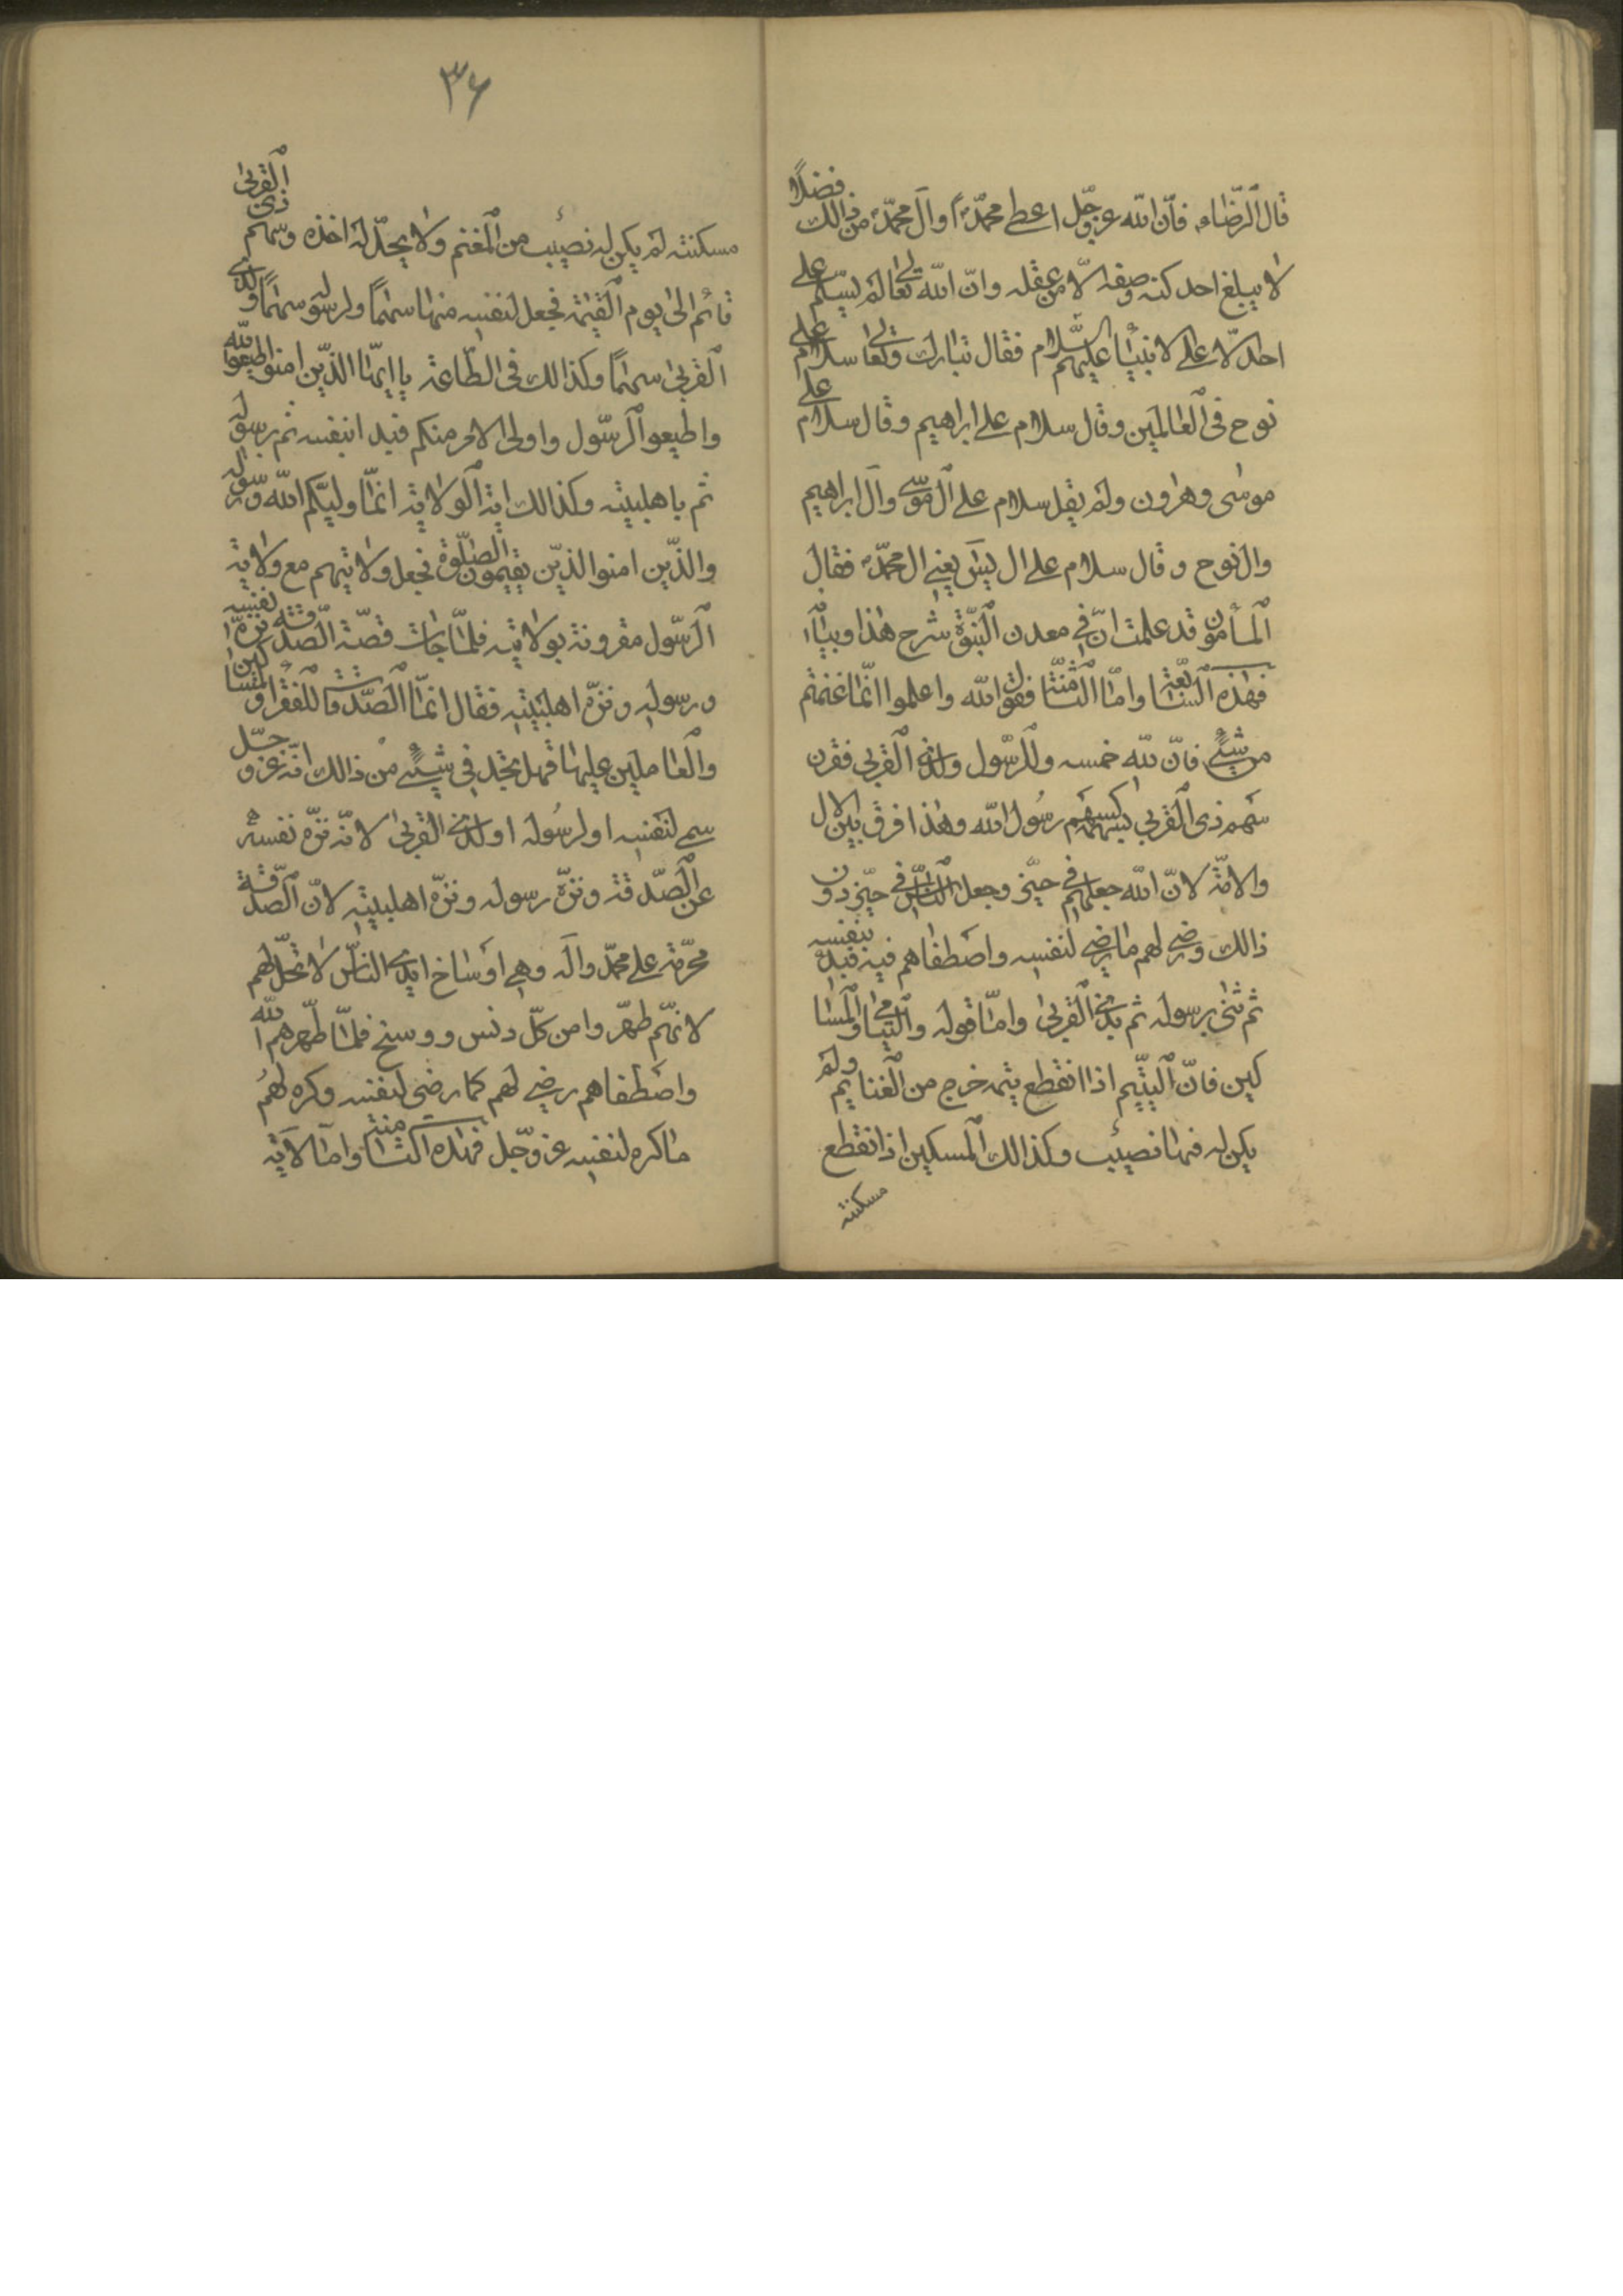 قال الرضاء فان الله عزوجل اعطى محمدا وال محمد من ذالك فضلا
لا يبلغ احد كنه وصفه الا من عقله وان الله تعالى لم يسلم على
احد الا على الانبياء عليهم السلام فقال تبارك وتعالى سلام على
نوح فى العالمين وقال سلام على ابراهيم وقال سلام على
موسى وهرون ولم يقل سلام على ال موسى وال ابراهيم
وال نوح وقال سلام على ال يس يعنى ال محمد فقال
المأمون قد علمت ان فى معدن النبوة شرح هذا وبيانه
فهذه السابعة واما الثامنة فقول الله واعلموا انما غنمتم
من شئ فان لله خمسه وللرسول ولذى القربى فقرن
سهم ذى القربى بسهمه وسهم رسول الله وهذا فرق بين الال
والامة لان الله جعلهم فى حيز وجعل الناس فى حيز دون
ذالك ورضى لهم ما رضى لنفسه واصطفاهم فيه فبدء بنفسه
ثم ثنى برسوله ثم بذى القربى واما قوله واليتامى والمسا
كين فان اليتيم اذا انقطع يتمه خرج من الغنايم ولم
يكن له فيها نصيب وكذالك المسكين اذا انقطع
مسكنته
٣۶
مسكنته لم يكن له نصيب من المغنم ولا يحل له اخذه وسهم ذى القربى
قائم الى يوم القيمة فجعل لنفسه منها سهما ولرسوله سهما ولذى
القربى سهما وكذالك فى الطاعة يا ايها الذين امنوا اطيعوا الله
واطيعوا الرسول واولى الامر منكم فبدا بنفسه ثم برسوله
ثم باهلبيته وكذالك اية الولاية انما وليكم الله ورسوله
والذين امنوا الذين يقيمون الصلوة فجعل ولايتهم مع ولاية
الرسول مقرونة بولايته فلما جات قصة الصدقة نزه نفسه
ورسوله ونزه اهلبيته فقال انما الصدقات للفقراء والمساكين
والعاملين عليها فهل تجد فى شئ من ذالك انه عزوجل
سمى لنفسه او لرسوله او لذى القربى لانه نزه نفسه
عن الصدقة ونزه رسوله ونزه اهلبيته لان الصدقة
محرمة على محمد واله وهى اوساخ ايدى الناس لا تحل لهم
لانهم طهروا من كل دنس ووسخ فلما طهرهم الله
واصطفاهم رضى لهم كما رضى لنفسه وكره لهم
ما كره لنفسه عزوجل فهذه الثامنة واما الاية